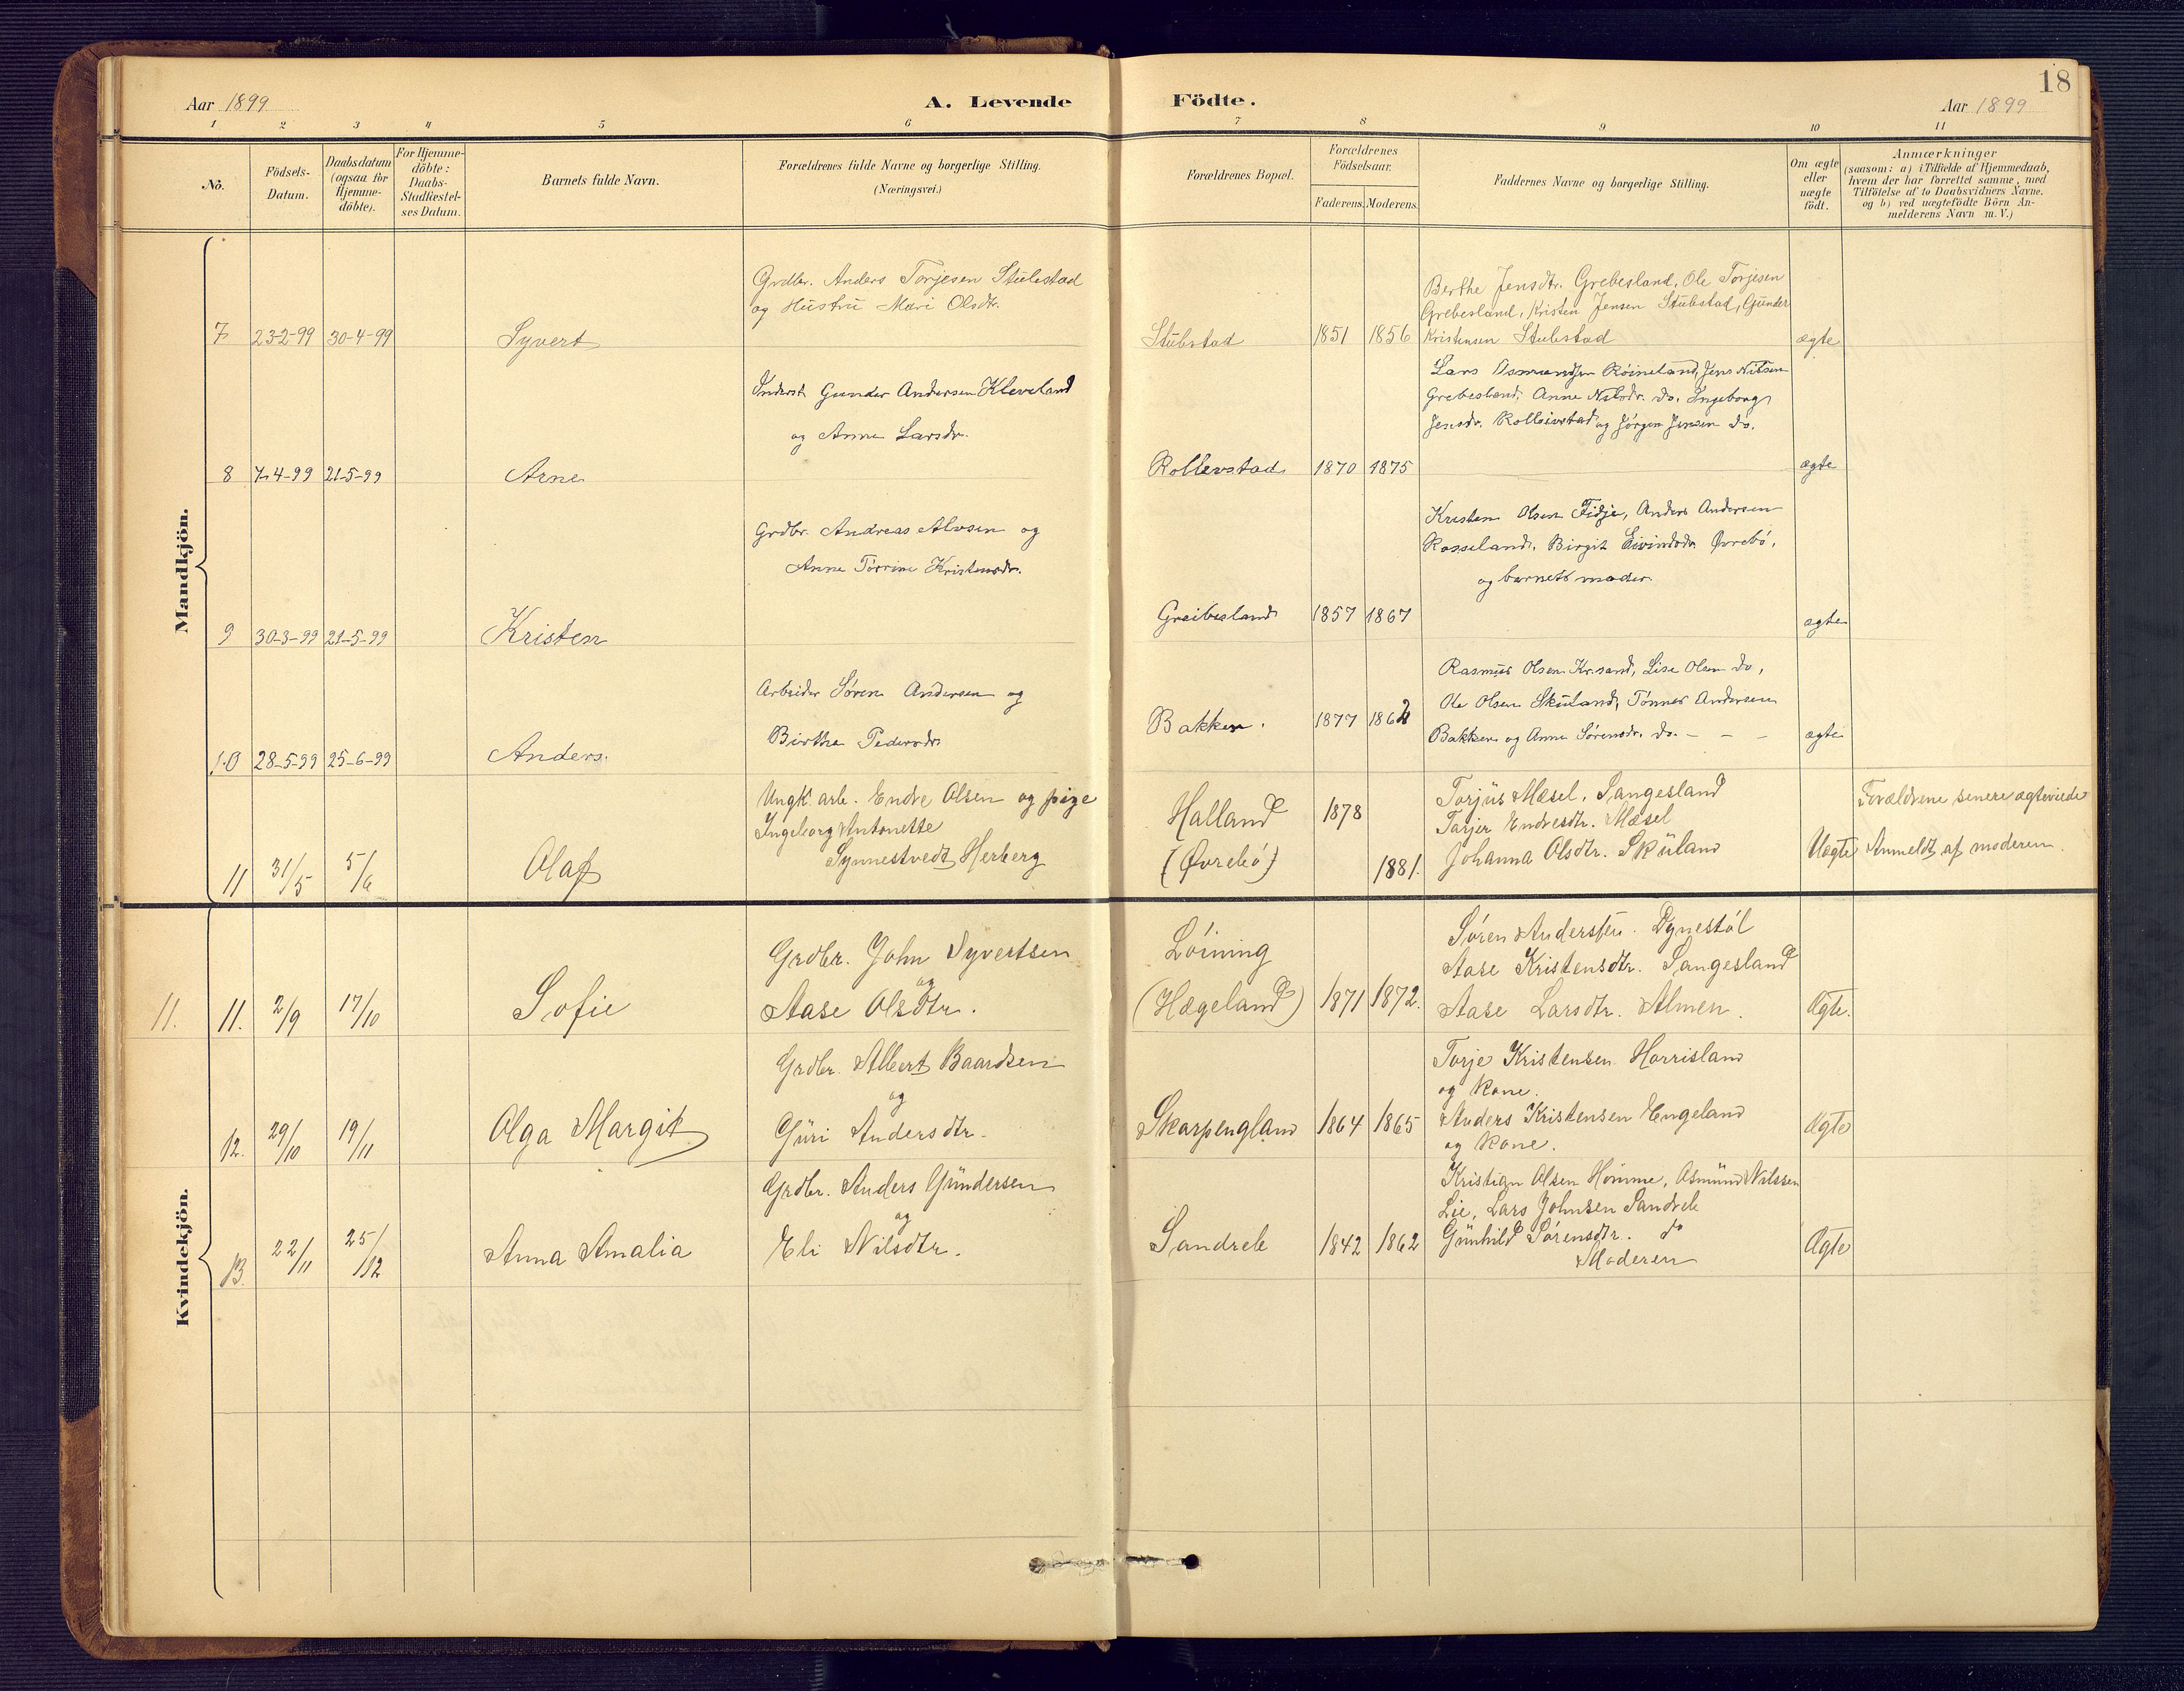 18
Aar 1899
A. Levende Födte.
Aar 1899
1 2 3 4 5 6 7 8 9 10 11
No.
Födsels-Datum.
Daabsdatum (ogsaa for Hjemme-döbte).
For Hjemme-döbte: Daabs-Stadfæstel-ses Datum.
Barnets fulde Navn.
Forældrenes fulde Navne og borgerlige Stilling.
(Næringsvei.)
Forældrenes Bopæl.
Forældrenes Födselsaar.
Faderens. Moderens.
Faddernes Navne og borgerlige Stilling.
Om ægte eller uægte födt.
Anmærkninger
(saasom: a) i Tilfælde af Hjemmedaab,
hvem der har forrettet samme, med
Tilföielse af to Daabsvidners Navne.
og b) ved uægtefödte Börn An-
melderens Navn m. V.)
Mandkjön.
Grdbr. Anders Torjesen Stubstad
og Hustru Mari Olsdtr.
Berthe Jensdtr. Grebesland, Ole Torjesen
Grebesland, Kristen Jensen Stubstad, Gunder
7 23-2-99 30-4-99 Syvert Stubstad 1851 1856 Kristensen Stubstad ægte
Inderst Gunder Andersen Kleveland
og Anne Larsdr.
Lars Osmundsen Röineland, Jens Nilsen
Grebesland, Anne Nilsdr. do. Ingeborg
Jensdr. Rolleivstad og Jörgen Jensen do.
8 7-4-99 21-5-99 Arne Rollevstad 1870 1875 ægte
Grdbr. Andreas Alvsen og
Anne Torrine Kristensdr.
Kristen Olsen Fidje, Anders Andersen
Rosseland, Birgit Eivindsdr. Øvrebö,
og barnets moder.
9 30-3-99 21-5-99 Kristen Greibesland 1857 1867 ægte
Arbeider Sören Andersen og
Birthe Pedersdr.
Rasmus Olsen Kr.sand, Lise Olsen do,
Ole Olsen Skuland, Tönnes Andersen
Bakken og Anne Sörensdr. do. - - -
10 28-5-99 25-6-99 Anders. Bakken. 1877 1862 ægte
Ungk. arb. Endre Olsen og pige
Ingeborg Antonette
Synnestvedt Herberg
Halland
(Øvrebö)
1878
1881.
Torjus Mæsel, Sangesland
Tarjer Endresdtr. Mæsel
Johanna Olsdtr. Skuland
Forældrene senere ægteviede
11 31/5 5/6 Olaf Uægte Anmeldt af moderen.
Kvindekjön.
Grdbr. John Syvertsen
og
Aase Olsdtr.
Löining
(Hægeland)
Sören Andersen. Dynestöl
Aase Kristensdtr. Sangesland
Aase Larsdtr. Almen.
11. 11. 2/9 17/10 Sofie 1871 1872. Ægte.
Grdbr. Albert Baardsen
og
Guri Andersdtr.
Torje Kristensen Horrisland
og Kone.
Anders Kristensen Engeland
og Kone.
12. 29/10 19/11 Olga Margit Skarpengland 1864 1865 Ægte
Grdbr. Anders Gundersen
og
Eli Nilsdtr.
Kristian Olsen Homme, Osmund Nilssen
Lie, Lars Johnsen Sandreb
Gunhild Sörensdtr. do
Moderen
13. 22/11 25/12 Anna Amalia Sandreb 1842 1862 Ægte